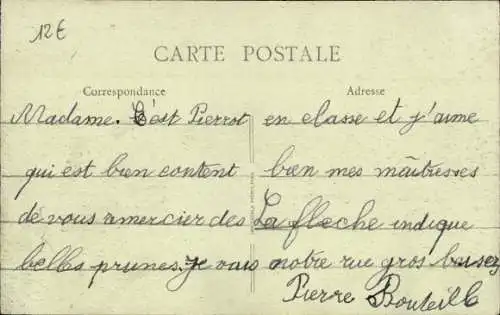 12€
CARTE POSTALE
Correspondance
Adresse
Madame. C'est Pierrot
qui est bien content
de vous remercier des
belles prunes. je vais
en classe et j'aime
bien mes maîtresses
La fleche indique
notre rue gros baisers
Pierre Bouteille